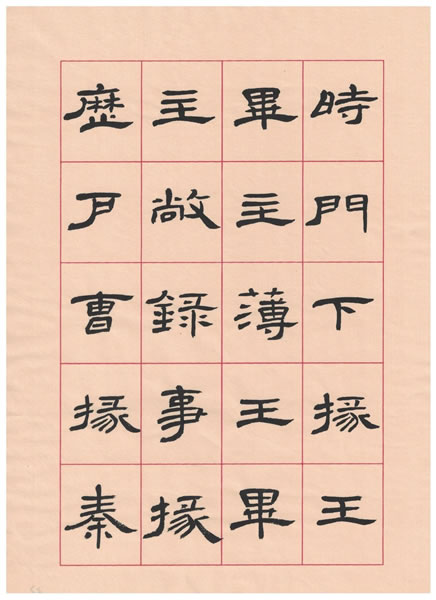 時門下掾王
畢主薄王畢
主敞録事掾
歴戶曹掾秦